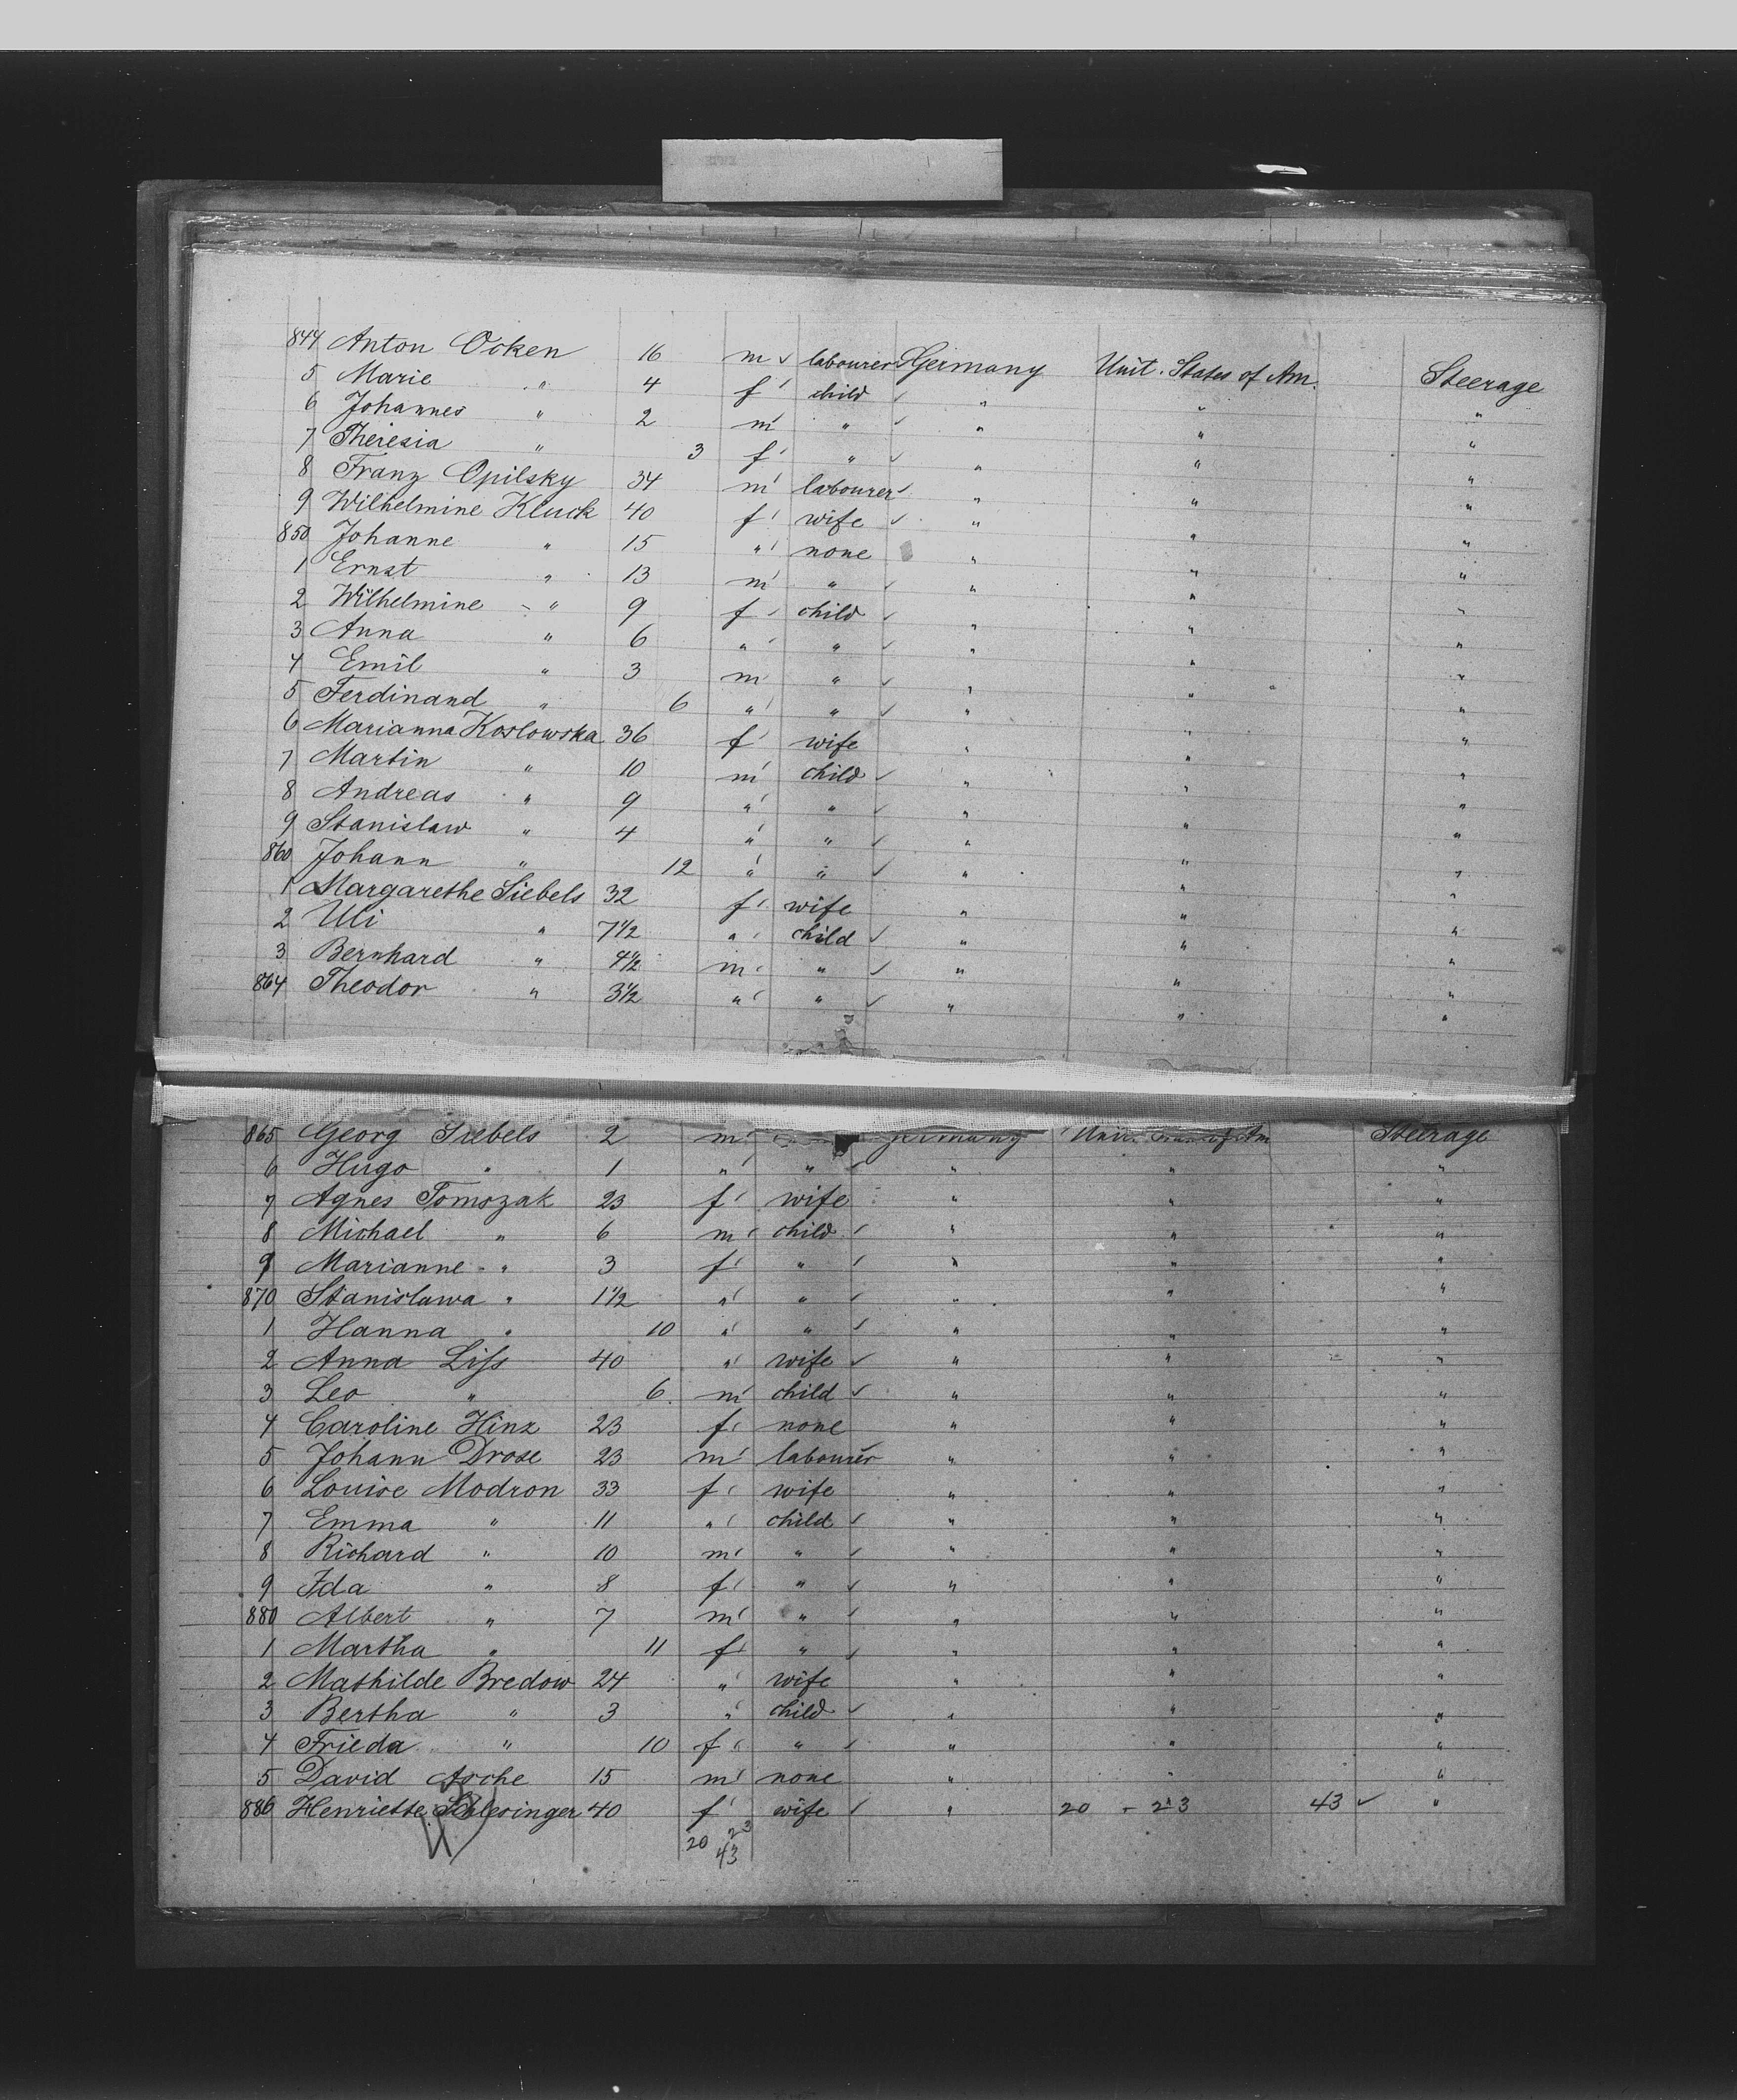 844 Anton Ocken 16 m labourer Germany Unit. States of Am. Steerage
5 Marie " 4 f child " " "
6 Johannes " 2 m " " " "
7 Theresia " 3 f " " " "
8 Franz Opilsky 34 m labourer " " "
9 Wilhelmine Kluck 40 f wife " " "
850 Johanne " 15 " none " " "
1 Ernst " 13 m " " " "
2 Wilhelmine " 9 f child " " "
3 Anna " 6 " " " " "
4 Emil " 3 m " " " "
5 Ferdinand " 6 " " " " "
6 Marianna Koslowska 36 f wife " " "
7 Martin " 10 m child " " "
8 Andreas " 9 " " " " "
9 Stanislaw " 4 " " " " "
860 Johann " 12 " " " " "
1 Margarethe Siebels 32 f wife " " "
2 Uli " 7 1/2 " child " " "
3 Bernhard " 4 1/2 m " " " "
864 Theodor " 3 1/2 " " " " "
865 Georg Siebels 2 m Germany Unit. States of Am Steerage
6 Hugo " 1 " " " " "
7 Agnes Tomszak 23 f wife " " "
8 Michael " 6 m child " " "
9 Marianne " 3 f " " " "
870 Stanislawa " 1 1/2 " " " " "
1 Hanna " 10 " " " " "
2 Anna Liss 40 " wife " " "
3 Leo " 6 m child " " "
4 Caroline Hinz 23 f none " " "
5 Johann Drose 23 m labourer " " "
6 Louise Modron 33 f wife " " "
7 Emma " 11 " child " " "
8 Richard " 10 m " " " "
9 Ida " 8 f " " " "
880 Albert " 7 m " " " "
1 Martha " 11 f " " " "
2 Mathilde Bredow 24 " wife " " "
3 Bertha " 3 " child " " "
4 Frieda " 10 f " " " "
5 David Asche 15 m none " " "
886 Henriette Schlesinger 40 f wife " 20 - 23 43 "
20 23
43